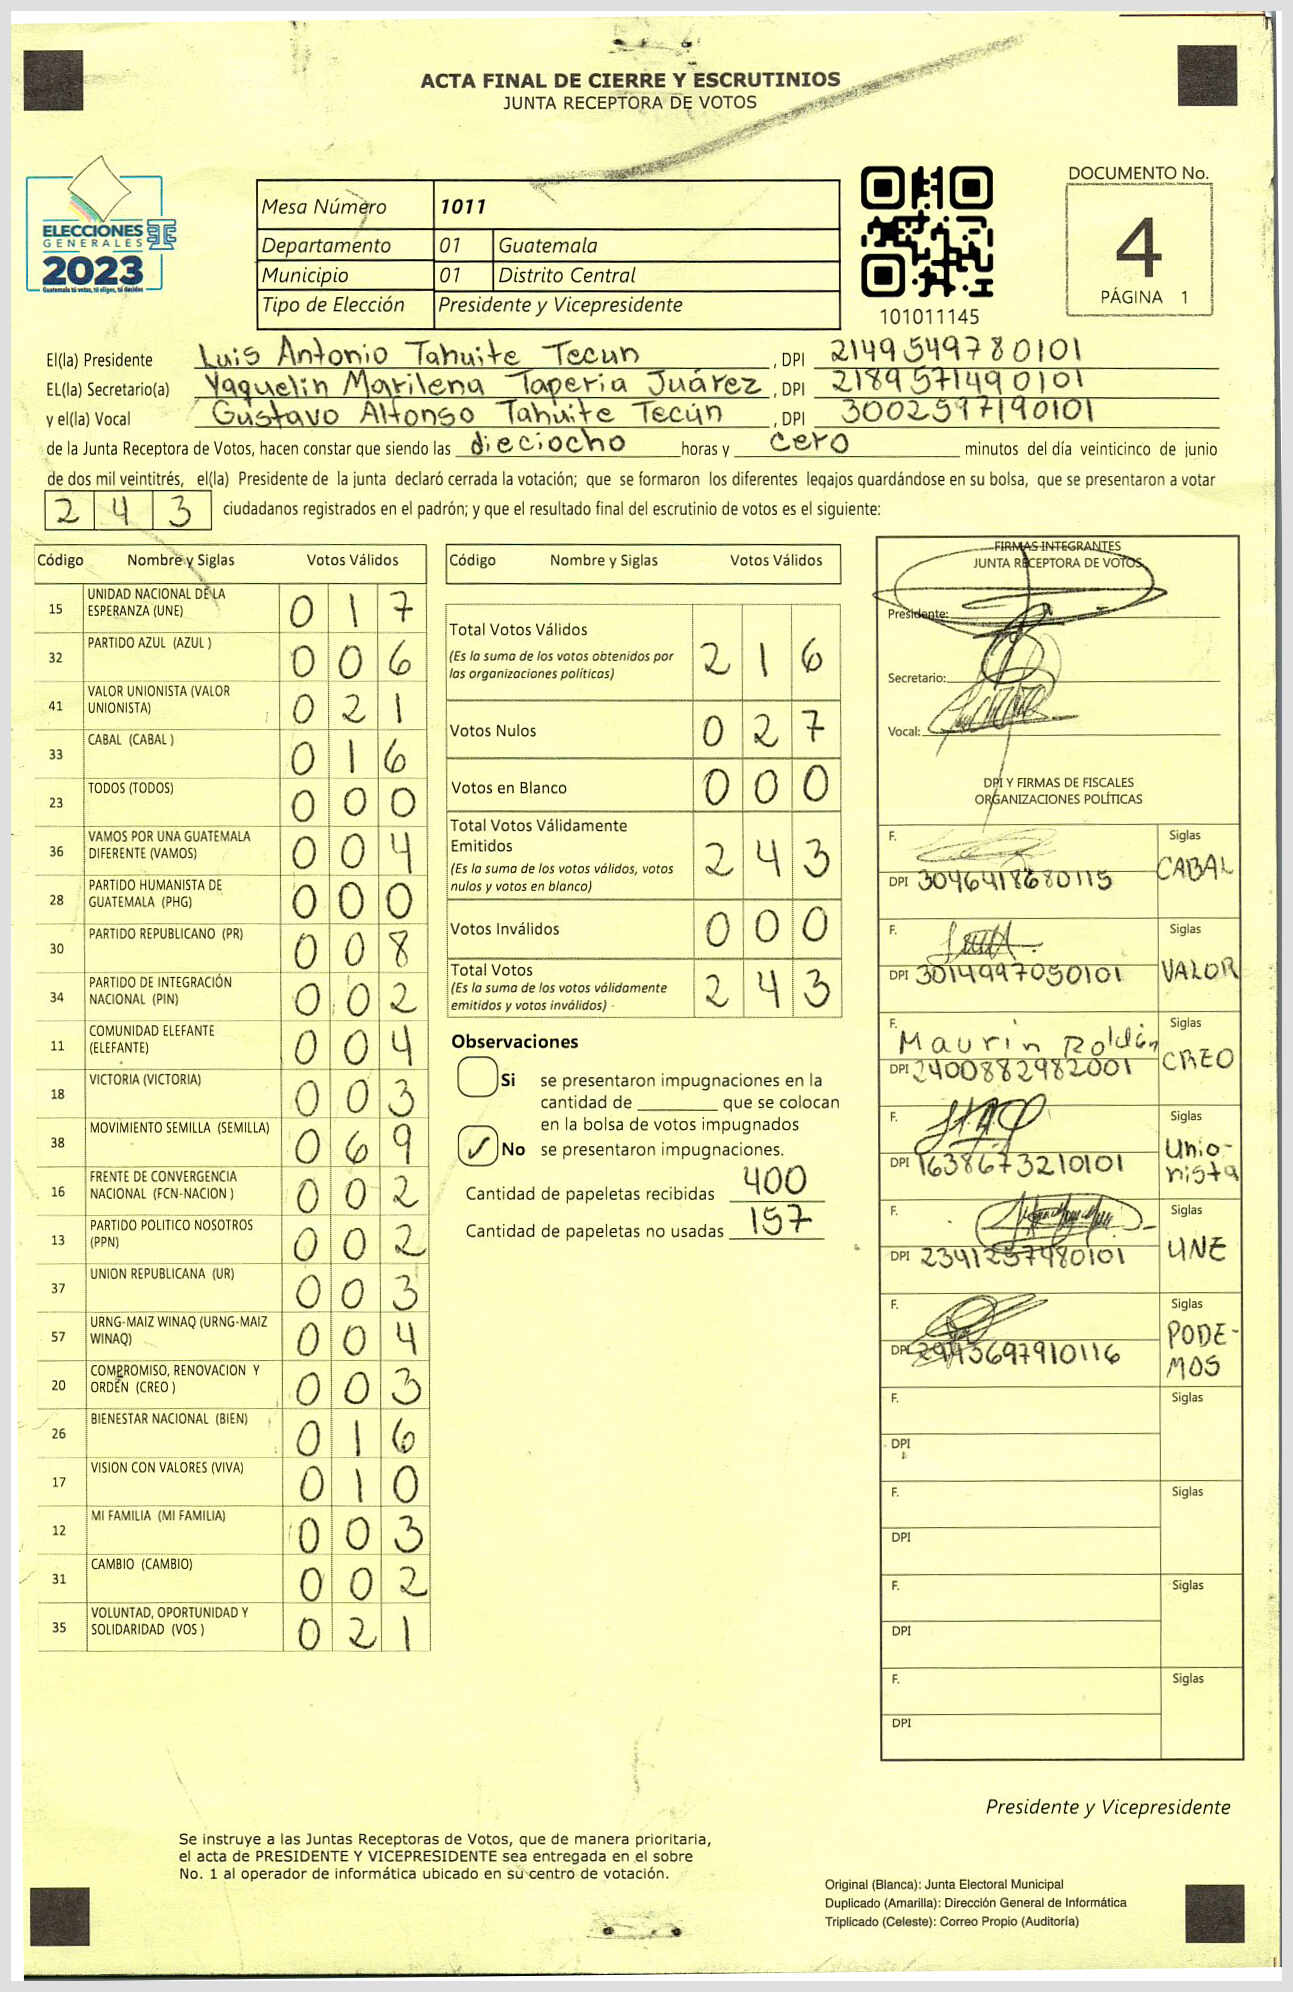 ACTA FINAL DE CIERRE Y ESCRUTINIOS
JUNTA RECEPTORA DE VOTOS
ELECCIONES
GENERALES
2023
Guatemala tú votas, tú eliges, tú decides
Mesa Número 1011
Departamento 01 Guatemala
Municipio 01 Distrito Central
Tipo de Elección Presidente y Vicepresidente
101011145
DOCUMENTO No.
4
PÁGINA 1
El(la) Presidente Luis Antonio Tahuite Tecun , DPI 2149549780101
EL(la) Secretario(a) Yaquelin Marilena Taperia Juárez , DPI 2189571490101
y el(la) Vocal Gustavo Alfonso Tahuite Tecún , DPI 3002597190101
de la Junta Receptora de Votos, hacen constar que siendo las dieciocho horas y cero minutos del día veinticinco de junio
de dos mil veintitrés, el(la) Presidente de la junta declaró cerrada la votación; que se formaron los diferentes legajos guardándose en su bolsa, que se presentaron a votar
243 ciudadanos registrados en el padrón; y que el resultado final del escrutinio de votos es el siguiente:
Código Nombre y Siglas Votos Válidos
15 UNIDAD NACIONAL DE LA
ESPERANZA (UNE) 017
32 PARTIDO AZUL (AZUL ) 006
41 VALOR UNIONISTA (VALOR
UNIONISTA) 021
33 CABAL (CABAL ) 016
23 TODOS (TODOS) 000
36 VAMOS POR UNA GUATEMALA
DIFERENTE (VAMOS) 004
28 PARTIDO HUMANISTA DE
GUATEMALA (PHG) 000
30 PARTIDO REPUBLICANO (PR) 008
34 PARTIDO DE INTEGRACIÓN
NACIONAL (PIN) 002
11 COMUNIDAD ELEFANTE
(ELEFANTE) 004
18 VICTORIA (VICTORIA) 003
38 MOVIMIENTO SEMILLA (SEMILLA) 069
16 FRENTE DE CONVERGENCIA
NACIONAL (FCN-NACION ) 002
13 PARTIDO POLITICO NOSOTROS
(PPN) 002
37 UNION REPUBLICANA (UR) 003
57 URNG-MAIZ WINAQ (URNG-MAIZ
WINAQ) 004
20 COMPROMISO, RENOVACION Y
ORDEN (CREO ) 003
26 BIENESTAR NACIONAL (BIEN) 016
17 VISION CON VALORES (VIVA) 010
12 MI FAMILIA (MI FAMILIA) 003
31 CAMBIO (CAMBIO) 002
35 VOLUNTAD, OPORTUNIDAD Y
SOLIDARIDAD (VOS ) 021
Código Nombre y Siglas Votos Válidos
Total Votos Válidos 216
(Es la suma de los votos obtenidos por
las organizaciones políticas)
Votos Nulos 027
Votos en Blanco 000
Total Votos Válidamente
Emitidos 243
(Es la suma de los votos válidos, votos
nulos y votos en blanco)
Votos Inválidos 000
Total Votos 243
(Es la suma de los votos válidamente
emitidos y votos inválidos)
Observaciones
Si se presentaron impugnaciones en la
cantidad de ________ que se colocan
en la bolsa de votos impugnados
✓ No se presentaron impugnaciones.
Cantidad de papeletas recibidas 400
Cantidad de papeletas no usadas 157
FIRMAS INTEGRANTES
JUNTA RECEPTORA DE VOTOS
Presidente:
Secretario:
Vocal:
DPI Y FIRMAS DE FISCALES
ORGANIZACIONES POLÍTICAS
F. Siglas
DPI 3046418680115 CABAL
F. Siglas
DPI 3014997050101 VALOR
F. Maurin Roldán Siglas
DPI 2400882982001 CREO
F. Siglas
DPI 1638673210101 Unio-
nista
F. Siglas
DPI 2341257980101 UNE
F. Siglas
DPI 2943697910116 PODE-
MOS
F. Siglas
DPI
F. Siglas
DPI
F. Siglas
DPI
F. Siglas
DPI
Presidente y Vicepresidente
Se instruye a las Juntas Receptoras de Votos, que de manera prioritaria,
el acta de PRESIDENTE Y VICEPRESIDENTE sea entregada en el sobre
No. 1 al operador de informática ubicado en su centro de votación.
Original (Blanca): Junta Electoral Municipal
Duplicado (Amarilla): Dirección General de Informática
Triplicado (Celeste): Correo Propio (Auditoría)